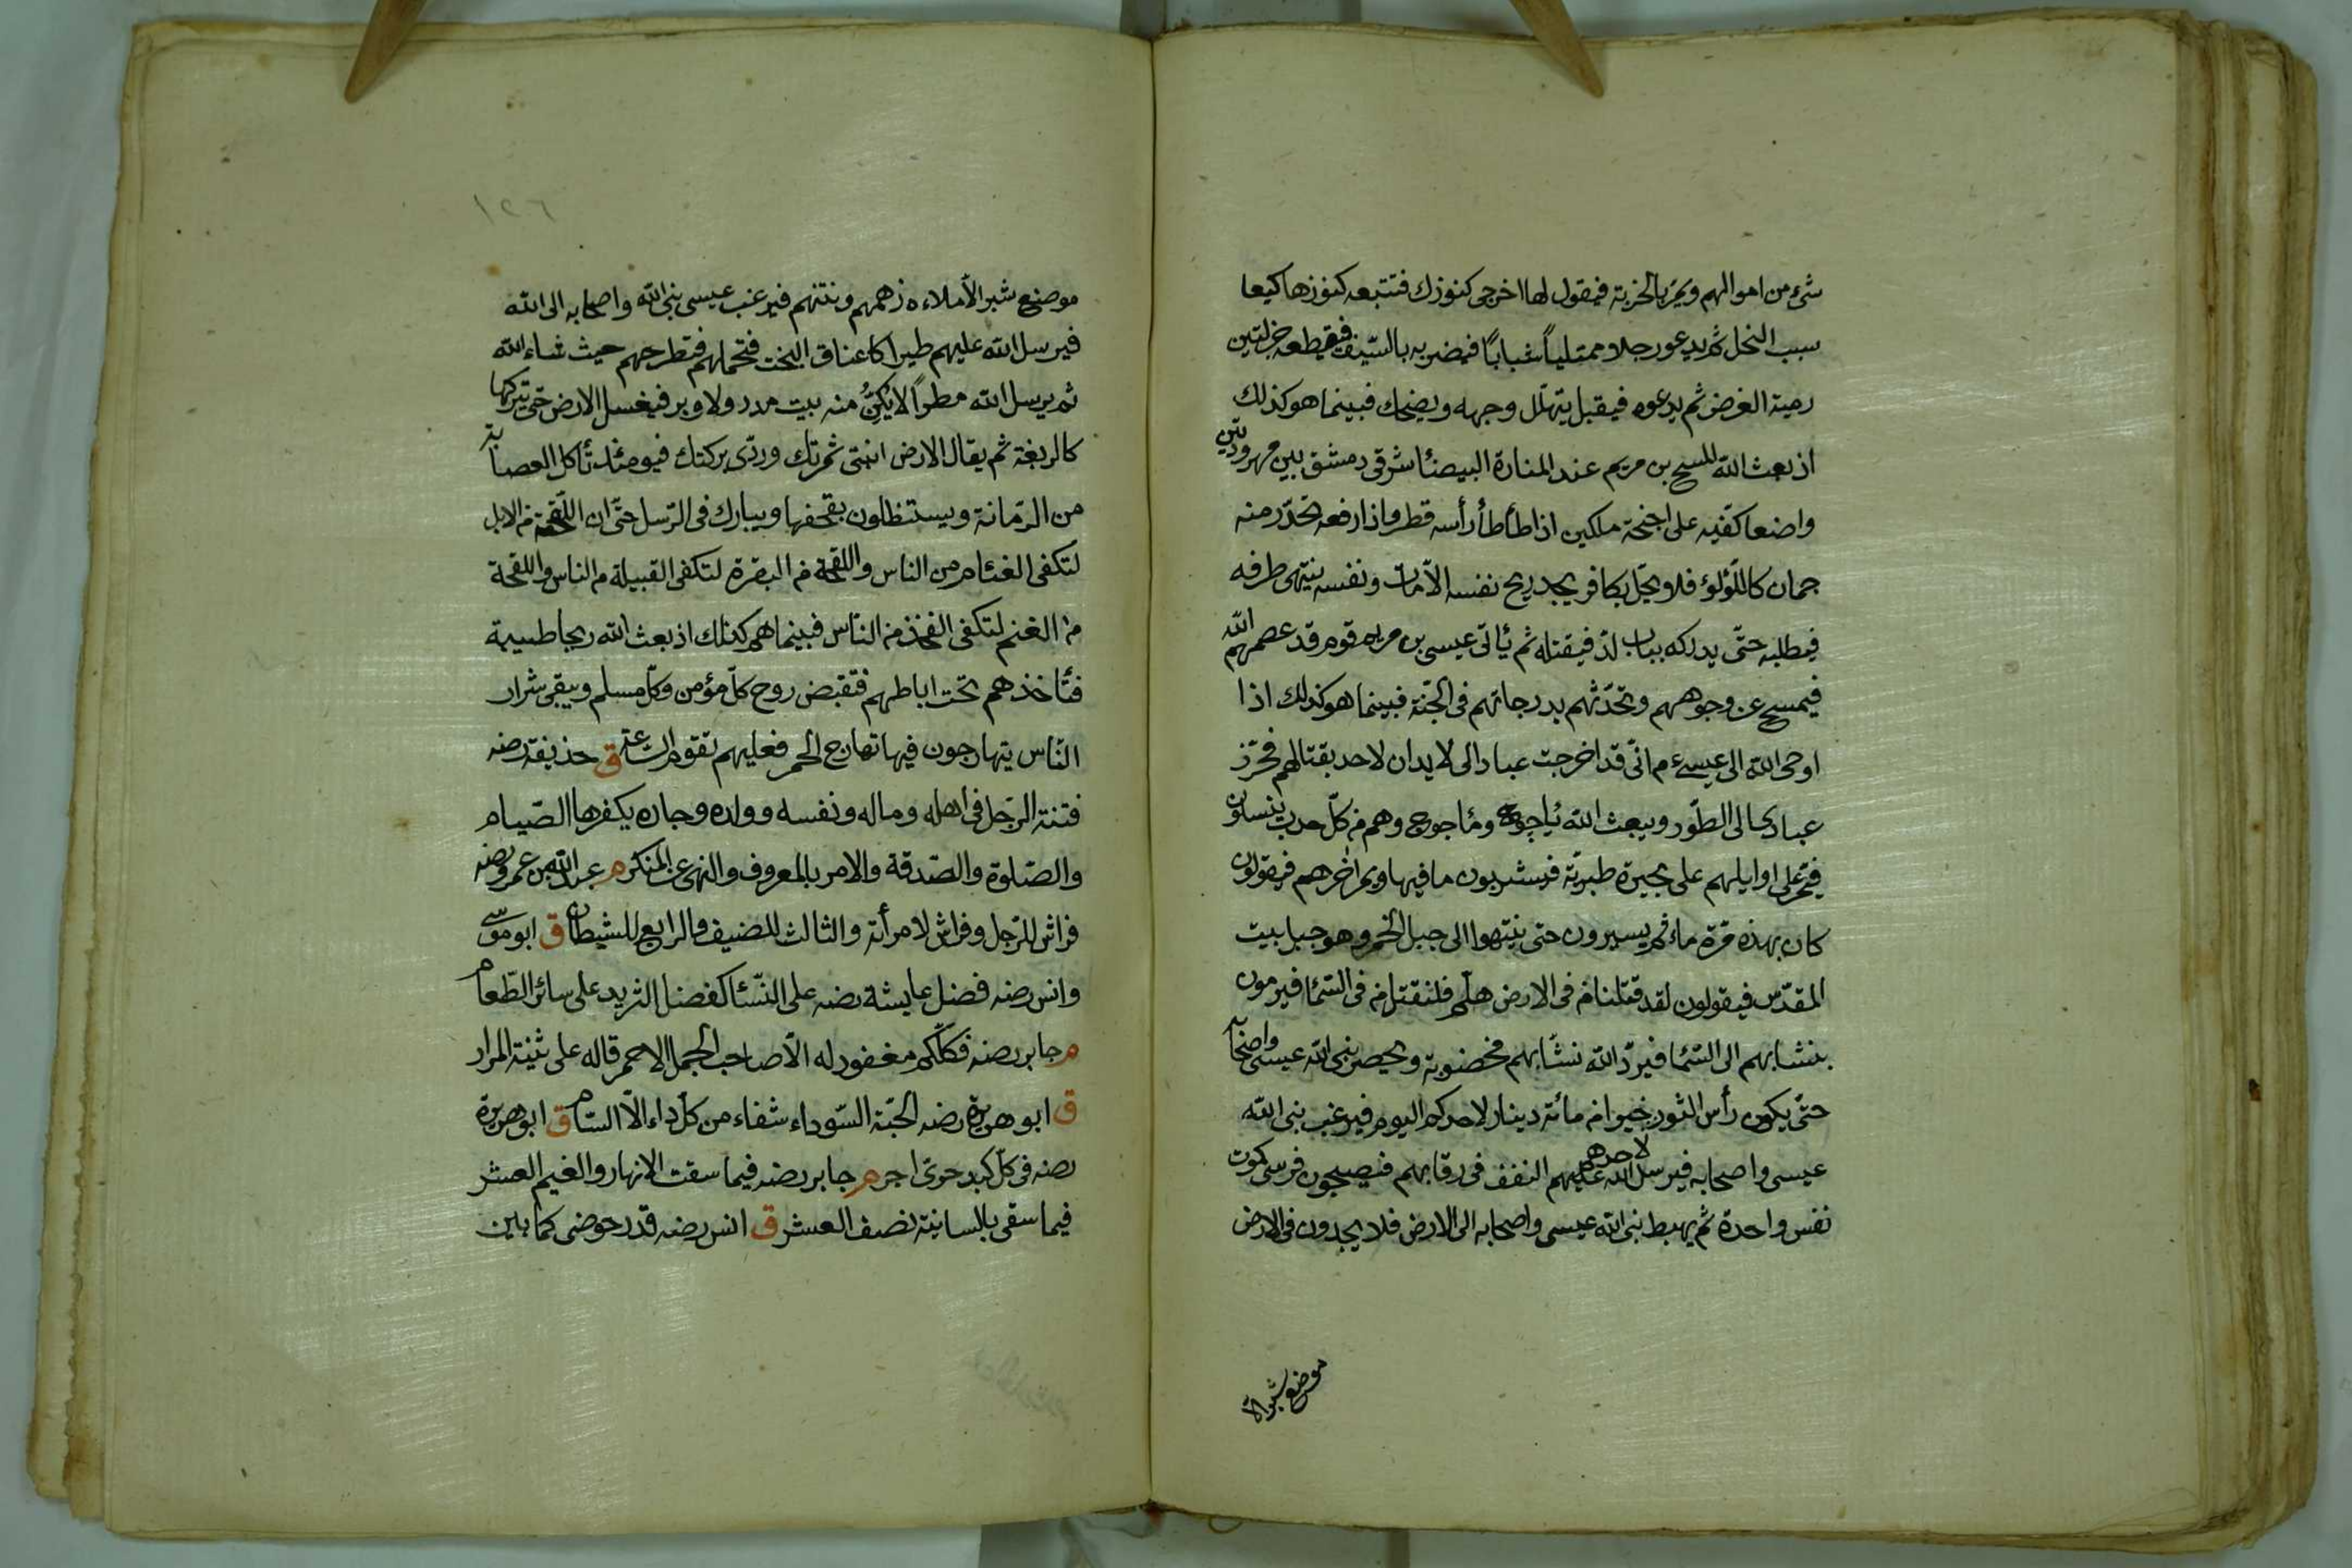 شئ من اموالهم ويمر بالخربة فيقول لها اخرجى كنوزك فتتبعه كنوزها كيعا
سيب النحل ثم يدعو رجلا ممتلياً شباباً فيضربه بالسّيف فيقطعه جزلتين
رمية الغرض ثم يدعوه فيقبل يتهلّل وجهه ويضحك فبينما هو كذلك
اذ بعث الله المسيح بن مريم عند المنارة البيضأ شرقى دمشق بين مهرودتين
واضعا كفّيه على اجنحة ملكين اذا طأطأ رأسه قطر واذا رفعه تحدّر منه
جمان كاللّؤلؤ فلا يحلّ بكافر يجد ريح نفسه الاّ مات ونفسه ينتهى طرفه
فيطلبه حتّى يدركه بباب لدّ فيقتله ثم يأتى عيسى بن مريم قوم قد عصمهم الله
فيمسح عن وجوههم ويحدّثهم بدرجاتهم فى الجنّة فبينما هو كذلك اذا
اوحى الله الى عيسى ع م انّى قد اخرجت عبادا لى لا يدان لاحد بقتالهم فحرّز
عبادى الى الطّور ويبعث الله يأجوج ومأجوج وهم من كلّ حدب ينسلون
فيمرّ اوايلهم على بحيرة طبريّة فيشربون ما فيها ويمر اخرهم فيقولون
كان بهذه مرّة ماء ثم يسيرون حتى ينتهوا الى جبل الخمر وهو جبل بيت
المقدّس فيقولون لقد قتلنا من فى الارض هلّم فلنقتل من فى السّمأ فيرمون
بنشابهم الى السّمأ فيردّ الله نشّابهم مخضوبة ويحصر نبى الله عيسى واصحابه
حتّى يكون رأس الثور لاحدهم خيرا من مائة دينار لاحدكم اليوم فيرغب نبى الله
عيسى واصحابه فيرسل الله عليهم النغف فى رقابهم فيصبحون فرسى كموت
نفس واحدة ثم يهبط نبى الله عيسى واصحابه الى الارض فلا يجدون فى الارض
موضع شبر الا
١٢٦
موضع شبر الاّ ملاءه زهمهم ونتنهم فيرغب عيسى نبى الله واصحابه الى الله
فيرسل الله عليهم طيرا كاعناق البخت فتحملهم فتطرحهم حيث شاء الله
ثم يرسل الله مطراً لا يكنُّ منه بيت مدر ولا وبر فيغسل الارض حتى يتركها
كالزلفة ثم يقال الارض انبتى ثمرتك وردّى بركتك فيومئذ تأكل العصابة
من الرّمانة ويستظلون بقحفها ويبارك فى الرّسل حتّى ان اللّقحة من الابل
لتكفى الفئام من الناس واللقحة من البقرة لتكفى القبيلة من الناس واللقحة
من الغنم لتكفى الفخذ من النّاس فبينما هم كذلك اذ بعث الله ريحا طيبة
فتأخذهم تحت اباطهم فتقبض روح كلّ مؤمن وكلّ مسلم ويبقى شرار
النّاس يتهارجون فيها تهارج الحمر فعليهم تقوم الساعة ق حذيفة رضه
فتنة الرّجل فى اهله وماله ونفسه وولده وجاره يكفرها الصّيام
والصّلوة والصّدقة والامر بالمعروف والنهى عن المنكر م عبد الله بن عمرو رضه
فراش للرّجل وفراش لامرأته والثالث للضيف والرابع للشيطان ق ابو موسى
وانس رضه فضل عايشة رضه على النّسأ كفضل الثريد على سائر الطّعام
م جابر رضه فكلّكم مغفور له الاّ صاحب الجمل الاحمر قاله على ثنية المرار
ق ابو هريرة رضه الحبّة السّوداء شفاء من كلّ داء الاّ السّام ق ابو هريرة
رضه فى كلّ كبد حرّى اجر م جابر رضه فيما سقت الانهار والغيم العشر
فيما سقى بالسانية نصف العشر ق انس رضه قدر حوضى كما بين